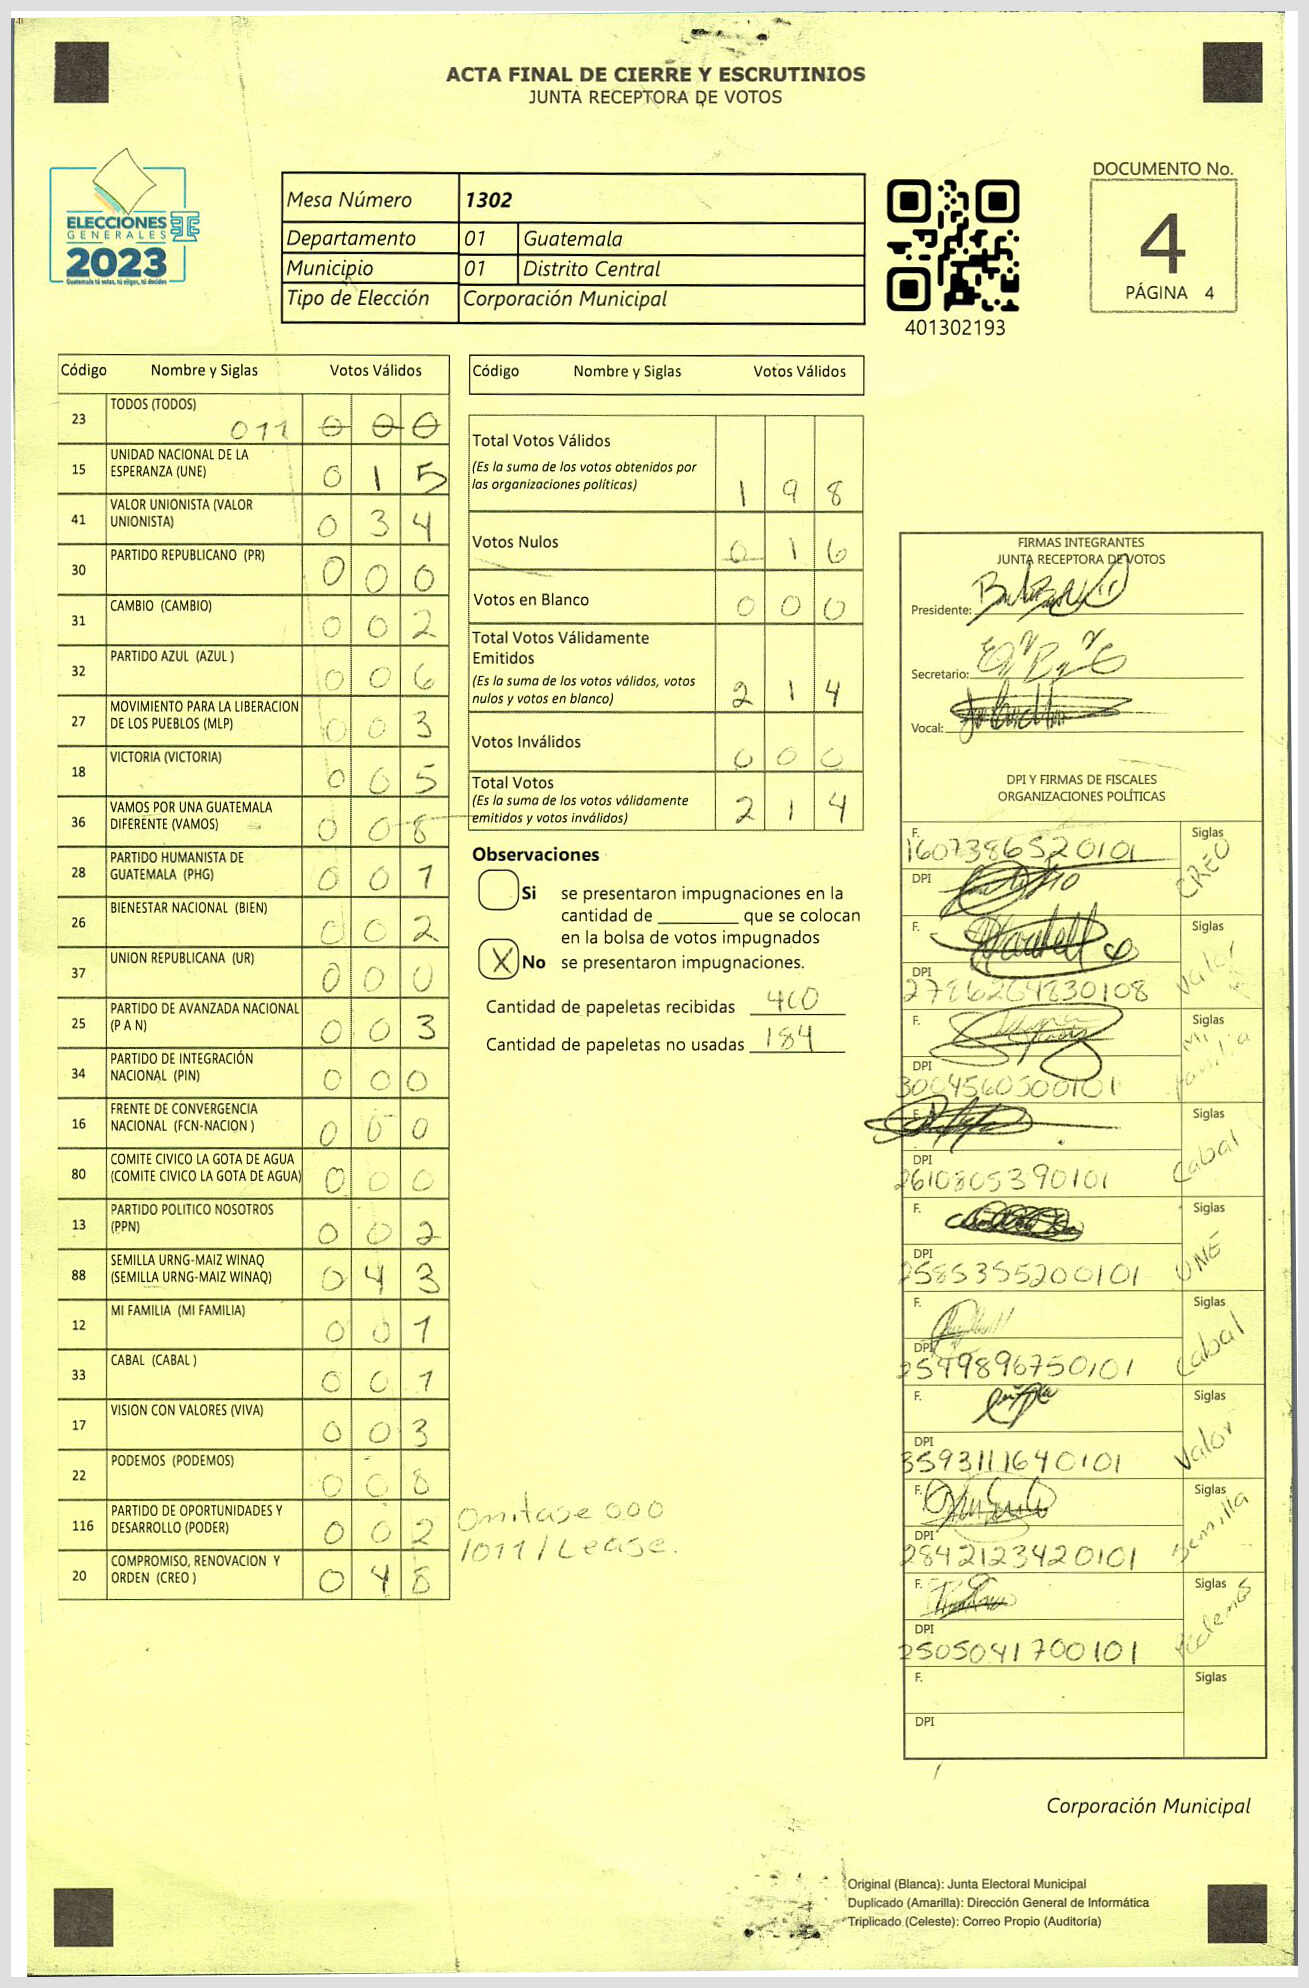 ACTA FINAL DE CIERRE Y ESCRUTINIOS
JUNTA RECEPTORA DE VOTOS
ELECCIONES
GENERALES
2023
Guatemala tú votas, tú eliges, tú decides
Mesa Número 1302
Departamento 01 Guatemala
Municipio 01 Distrito Central
Tipo de Elección Corporación Municipal
401302193
DOCUMENTO No.
4
PÁGINA 4
Código Nombre y Siglas Votos Válidos
23 TODOS (TODOS) 011 0 0 0
15 UNIDAD NACIONAL DE LA ESPERANZA (UNE) 0 1 5
41 VALOR UNIONISTA (VALOR UNIONISTA) 0 3 4
30 PARTIDO REPUBLICANO (PR) 0 0 0
31 CAMBIO (CAMBIO) 0 0 2
32 PARTIDO AZUL (AZUL ) 0 0 6
27 MOVIMIENTO PARA LA LIBERACION DE LOS PUEBLOS (MLP) 0 0 3
18 VICTORIA (VICTORIA) 0 0 5
36 VAMOS POR UNA GUATEMALA DIFERENTE (VAMOS) 0 0 8
28 PARTIDO HUMANISTA DE GUATEMALA (PHG) 0 0 1
26 BIENESTAR NACIONAL (BIEN) 0 0 2
37 UNION REPUBLICANA (UR) 0 0 0
25 PARTIDO DE AVANZADA NACIONAL (P A N) 0 0 3
34 PARTIDO DE INTEGRACIÓN NACIONAL (PIN) 0 0 0
16 FRENTE DE CONVERGENCIA NACIONAL (FCN-NACION ) 0 0 0
80 COMITE CIVICO LA GOTA DE AGUA (COMITE CIVICO LA GOTA DE AGUA) 0 0 0
13 PARTIDO POLITICO NOSOTROS (PPN) 0 0 2
88 SEMILLA URNG-MAIZ WINAQ (SEMILLA URNG-MAIZ WINAQ) 0 4 3
12 MI FAMILIA (MI FAMILIA) 0 0 1
33 CABAL (CABAL ) 0 0 1
17 VISION CON VALORES (VIVA) 0 0 3
22 PODEMOS (PODEMOS) 0 0 8
116 PARTIDO DE OPORTUNIDADES Y DESARROLLO (PODER) 0 0 2
20 COMPROMISO, RENOVACION Y ORDEN (CREO ) 0 4 8
Omitase 000
/011/ Lease.
Código Nombre y Siglas Votos Válidos
Total Votos Válidos
(Es la suma de los votos obtenidos por
las organizaciones políticas) 1 9 8
Votos Nulos 0 1 6
Votos en Blanco 0 0 0
Total Votos Válidamente
Emitidos
(Es la suma de los votos válidos, votos
nulos y votos en blanco) 2 1 4
Votos Inválidos 0 0 0
Total Votos
(Es la suma de los votos válidamente
emitidos y votos inválidos) 2 1 4
Observaciones
Si se presentaron impugnaciones en la
cantidad de ________ que se colocan
en la bolsa de votos impugnados
X No se presentaron impugnaciones.
Cantidad de papeletas recibidas 400
Cantidad de papeletas no usadas 184
FIRMAS INTEGRANTES
JUNTA RECEPTORA DE VOTOS
Presidente:
Secretario:
Vocal:
DPI Y FIRMAS DE FISCALES
ORGANIZACIONES POLÍTICAS
F. Siglas
1607386520101 CREO
DPI
F. Siglas
DPI Valor
2786264830108
F. Siglas
Mi familia
DPI
3004560500101
F. Siglas
DPI Cabal
2610805390101
F. Siglas
DPI UNE
2585355200101
F. Siglas
DPI Cabal
2549896750101
F. Siglas
DPI Valor
3593111640101
F. Siglas
DPI Semilla
2842123420101
F. Siglas
DPI
2505041700101
F. Siglas
DPI
Corporación Municipal
Original (Blanca): Junta Electoral Municipal
Duplicado (Amarilla): Dirección General de Informática
Triplicado (Celeste): Correo Propio (Auditoría)